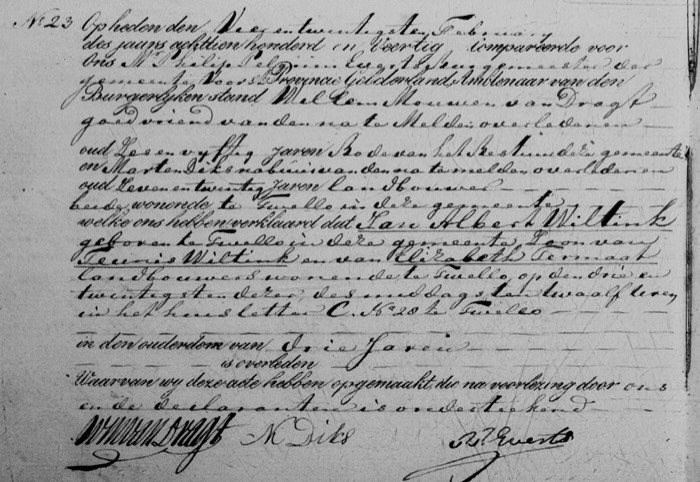 No 23 Op heden den Vier en twintigsten February
des jaars achttien honderd en Veertig compareerde voor
Ons Mr Philip Pelgrim Everts burgemeester der
gemeente Voorst Provincie Gelderland Ambtenaar van den
Burgerlyken stand Willem Mouwen van Dragt
goed vriend van den na te Melden overledenen
oud Zes en vyftig jaren Bode van het Bestuur dezer gemeente
en Marten Diks nabuur van den na te melden overledenen
oud Zeven en twintig Jaren landbouwer
beide wonende te Twello in deze gemeente
welke ons hebben verklaard dat Jan Albert Wiltink
geboren te Twello in deze gemeente, Zoon van
Teunis Wiltink en van Elizabeth Termaat
landbouwers wonende te Twello, op den drie en
twintigsten dezer, des middags ten twaalf uren
in het huis letter C. No 28 te Twello
in den ouderdom van drie Jaren
is overleden
Waarvan wy deze acte hebben opgemaakt, die na voorlezing door ons
en de declaranten is onderteekend
WM van Dragt M Diks Everts